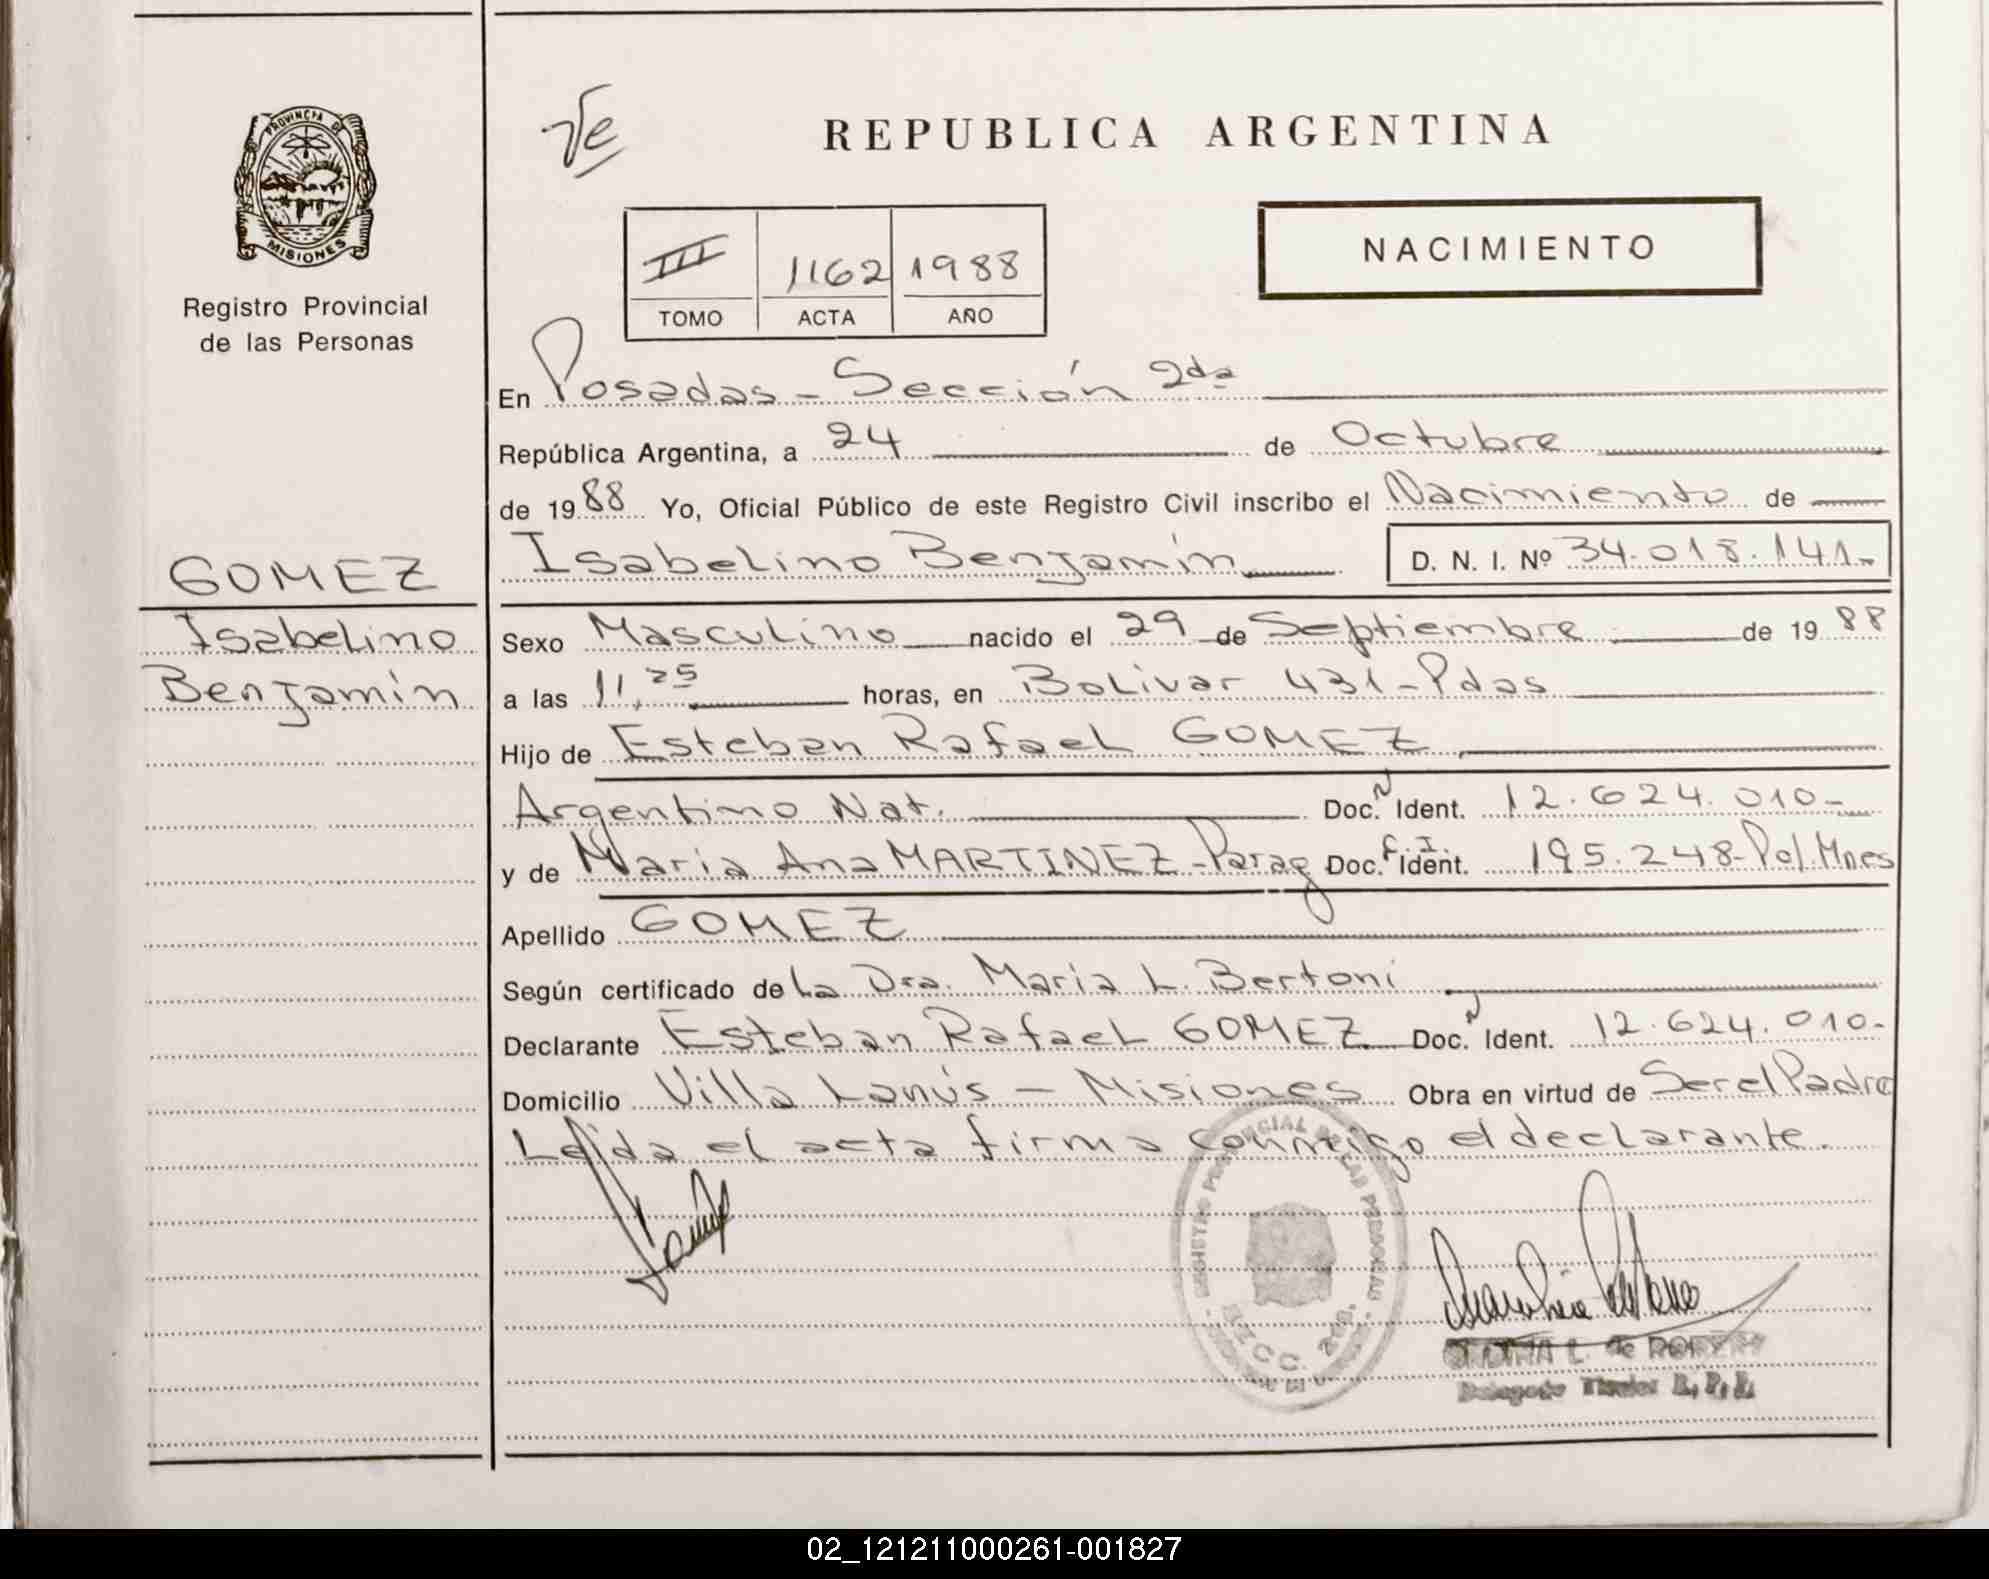 PROVINCIA DE
MISIONES
Registro Provincial
de las Personas
GOMEZ
Isabelino
Benjamín
REPUBLICA ARGENTINA
NACIMIENTO
III 1162 1988
TOMO ACTA AÑO
En Posadas - Sección 2da
República Argentina, a 24 de Octubre
de 1988 Yo, Oficial Público de este Registro Civil inscribo el Nacimiento de
Isabelino Benjamín D. N. I. Nº 34.018.141.-
Sexo Masculino nacido el 29 de Septiembre de 1988
a las 11,25 horas, en Bolivar 431 - Pdas
Hijo de Esteban Rafael GOMEZ
Argentino Nat. Doc. N Ident. 12.624.010-
y de Maria Ana MARTINEZ - Parag Doc. C.I. Ident. 195.248- Pol. Mnes
Apellido GOMEZ
Según certificado de La Dra. María L. Bertoni
Declarante Esteban Rafael GOMEZ Doc. N Ident. 12.624.010-
Domicilio Villa Lanús - Misiones Obra en virtud de Ser el Padre
Leída el acta firma conmigo el declarante.
REGISTRO PROVINCIAL DE LAS PERSONAS
SECC. 2da.
L. de
Delegado Titular R. P. P.
02_121211000261-001827